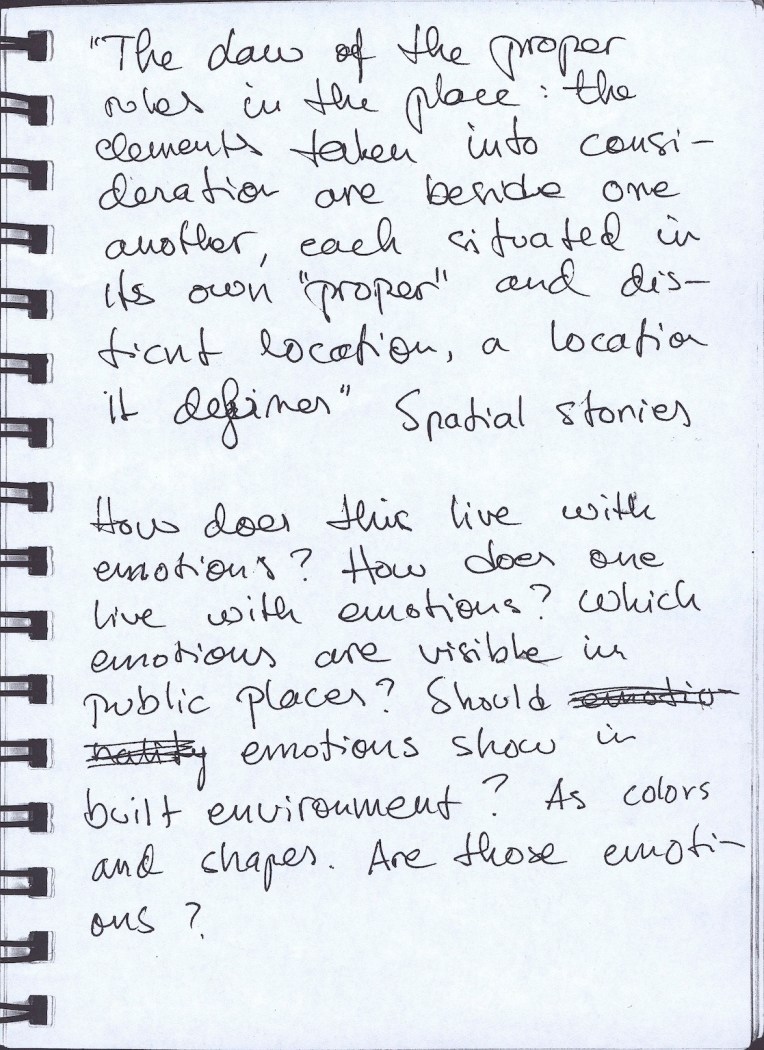 "The law of the proper
rules in the place: the
elements taken into consi-
deration are beside one
another, each situated in
its own "proper" and dis-
ticnt location, a location
it defines" Spatial stories
How does this live with
emotions? How does one
live with emotions? Which
emotions are visible in
public places? Should emotio-
nality emotions show in
built environment? As colors
and shapes. Are those emoti-
ons?